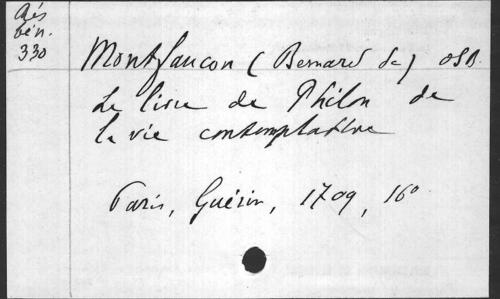 Rés
bén.
330
Montfaucon (Bernard de) OSB.
Le livre de Philon de
la vie contemplative
Paris, Guérin, 1709, 16°